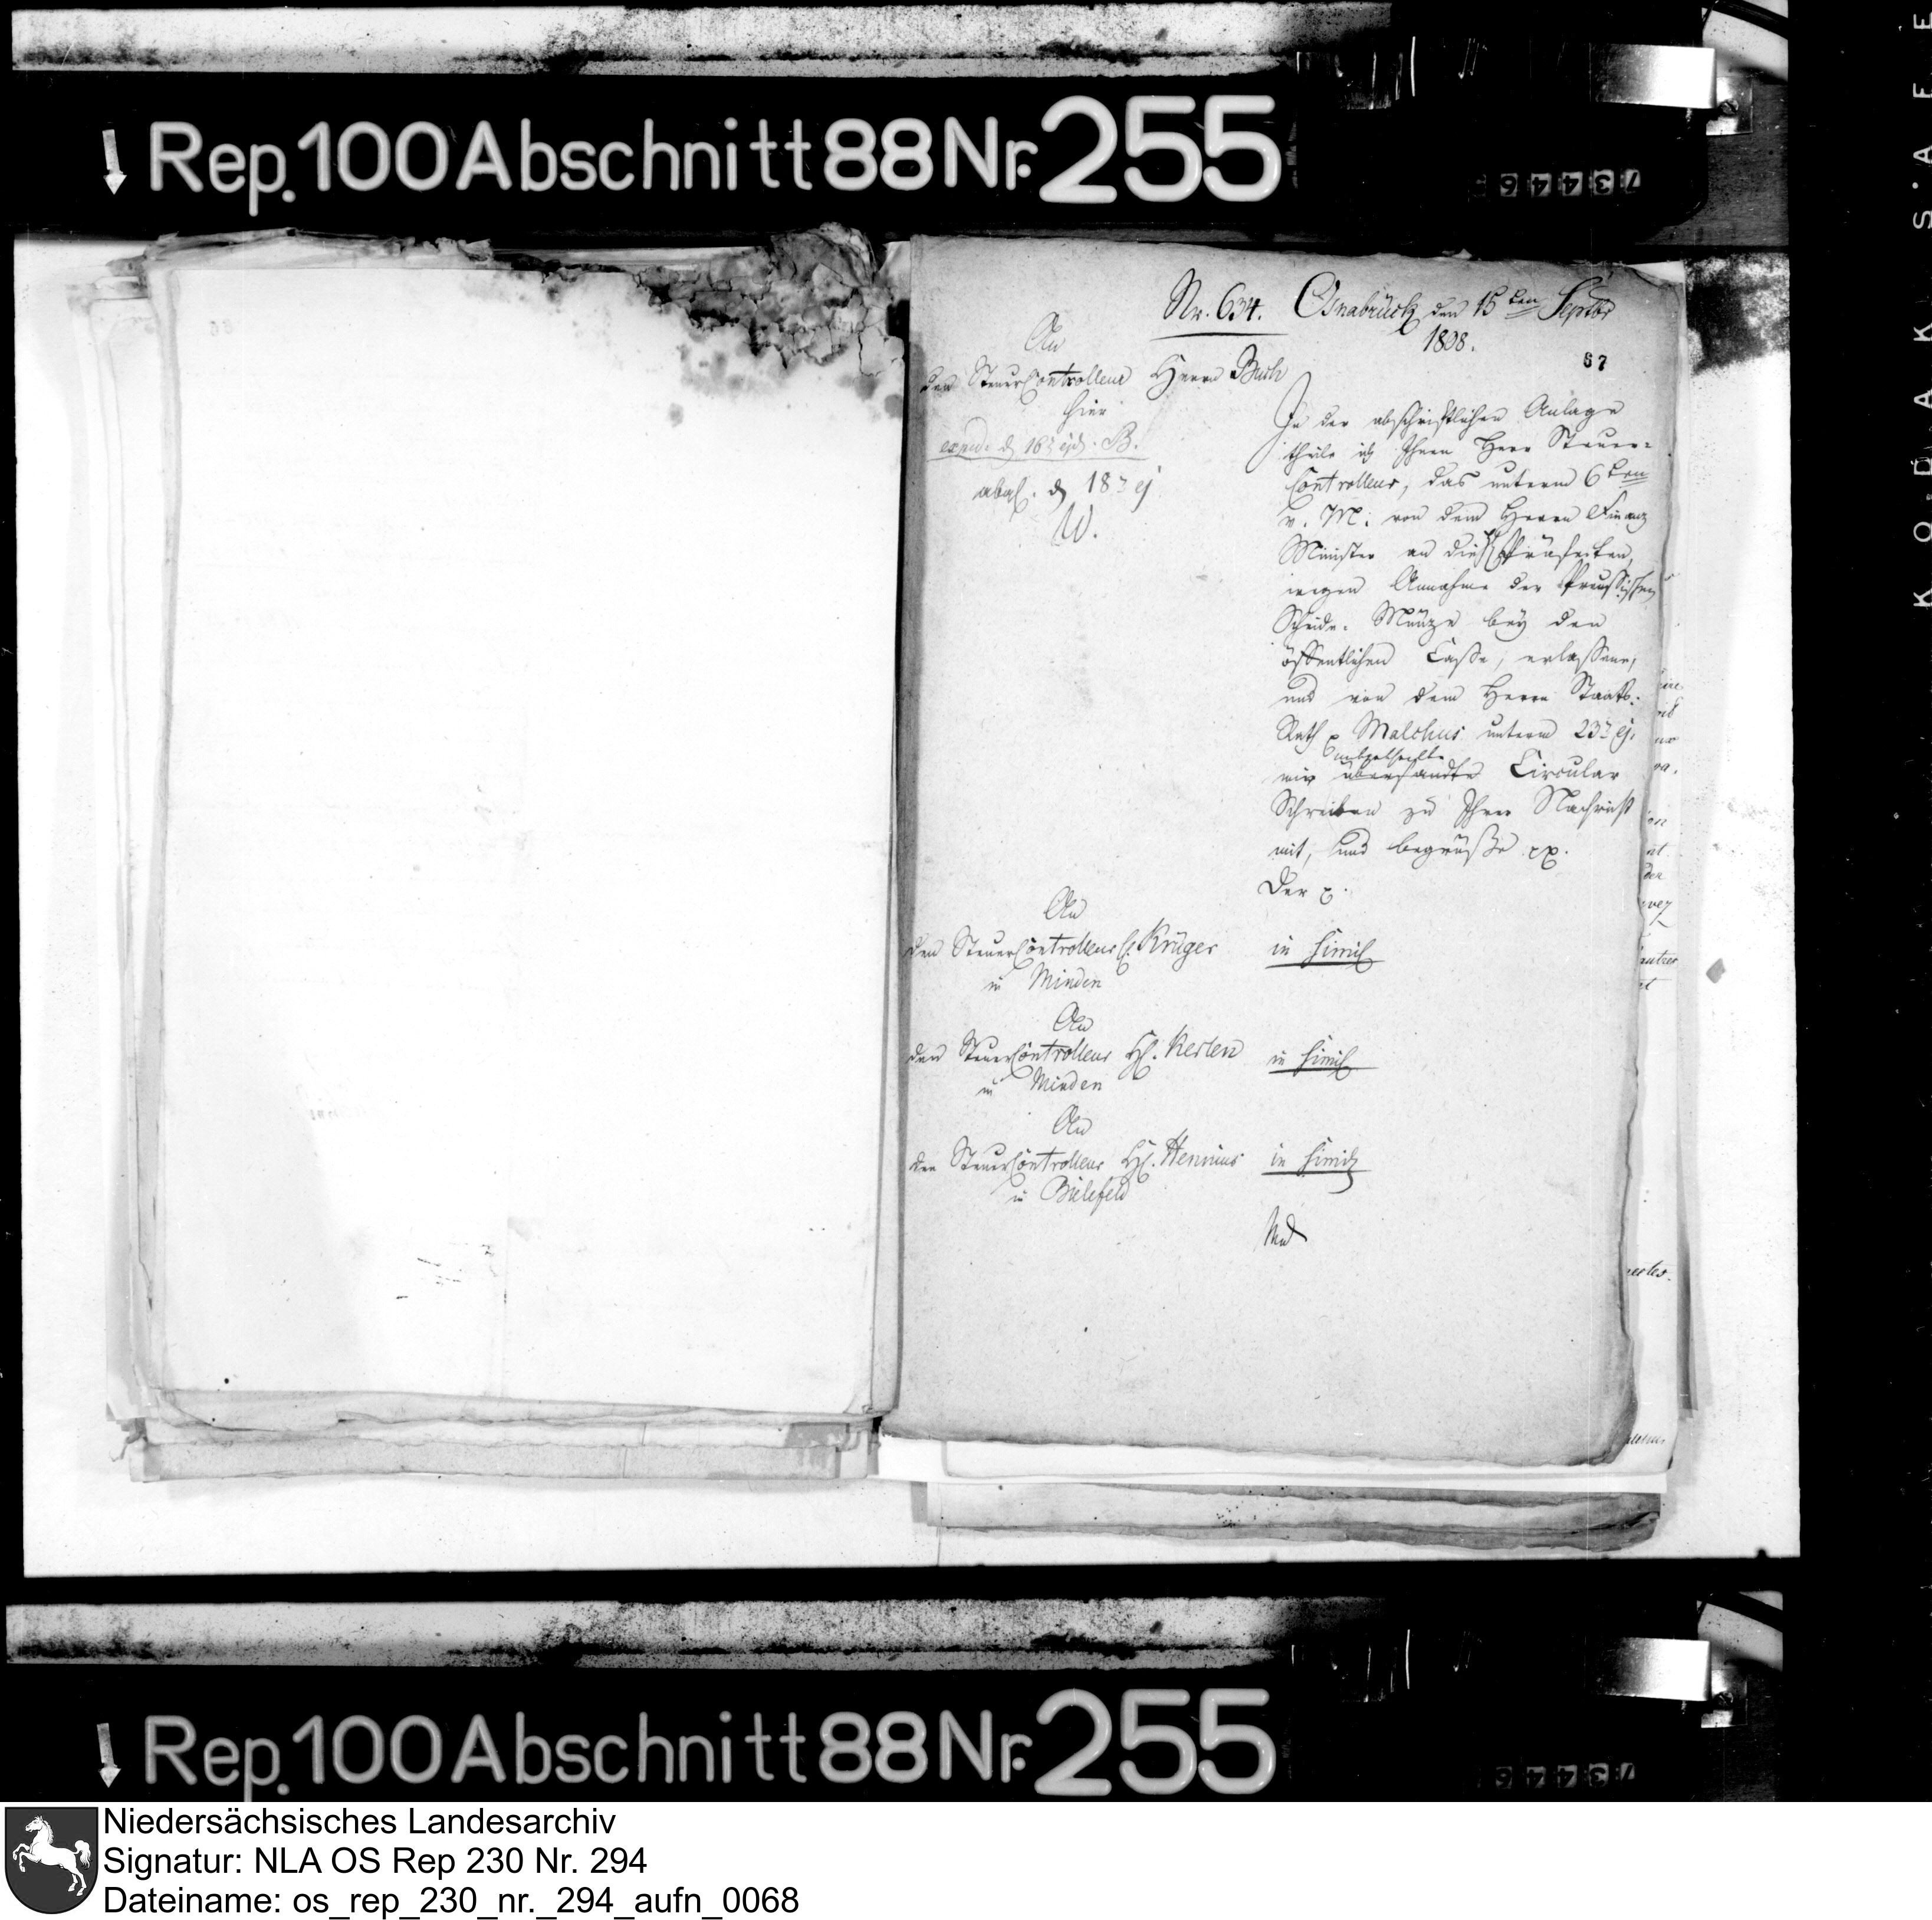 Rep. 100 Abschnitt 88 Nr. 255
73446
KODAK S'AFE
Nr. 634. Osnabrück den 15ten Septbr
1808.
67
An
den SteuerControlleur Herrn Buch
hier
exped. d 16t ejd. B.
abgl. d 18t ej
W.
In der abschriftlichen Anlage
theile ich Ihnen Herr Steuer-
Controlleur, das unterm 6ten
v. M. von dem Herrn Finanz
Minister an die Präfecten,
wegen Annahme der Preussischen
Scheide-Münze bey den
öffentlichen Casse, erlassene,
und von dem Herrn Staats-
Rath Malchus unterm 23t ej.
mitgetheilte
mir übersandte Circular
Schreiben zu Ihrer Nachricht
mit, und begrüße pp.
Der p.
An
den SteuerControlleur H. Krüger in simil
in Minden
An
den SteuerControlleur H. Kersten in simil
in Minden
An
den SteuerControlleur H. Hennius in simil
in Bielefeld
Rep. 100 Abschnitt 88 Nr. 255
73446
Niedersächsisches Landesarchiv
Signatur: NLA OS Rep 230 Nr. 294
Dateiname: os_rep_230_nr._294_aufn_0068